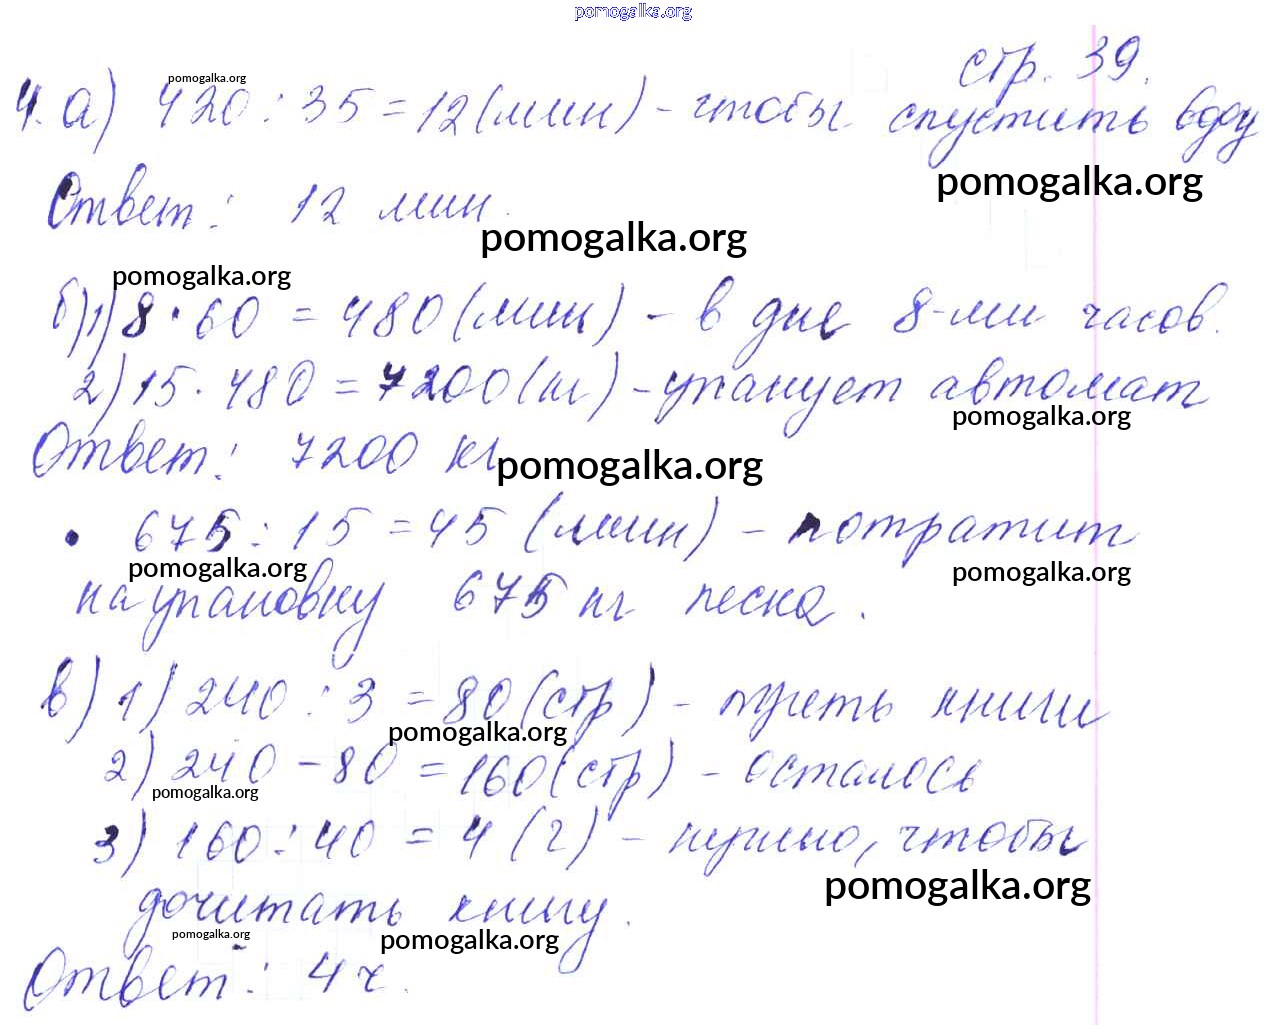 pomogalka.org
стр. 39.
pomogalka.org
4. а) 420 : 35 = 12 (мин) - чтобы спустить воду
pomogalka.org
Ответ: 12 мин.
pomogalka.org
pomogalka.org
б) 1) 8 · 60 = 480 (мин) - в дне 8-ми часов.
2) 15 · 480 = 7200 (кг) - упакует автомат
pomogalka.org
Ответ: 7200 кг
pomogalka.org
• 675 : 15 = 45 (мин) - потратит
pomogalka.org pomogalka.org
на упаковку 675 кг песка.
в) 1) 240 : 3 = 80 (стр) - треть книги
pomogalka.org
2) 240 - 80 = 160 (стр) - осталось
pomogalka.org
3) 160 : 40 = 4 (ч) - нужно, чтобы
pomogalka.org
дочитать книгу.
pomogalka.org pomogalka.org
Ответ: 4 ч.